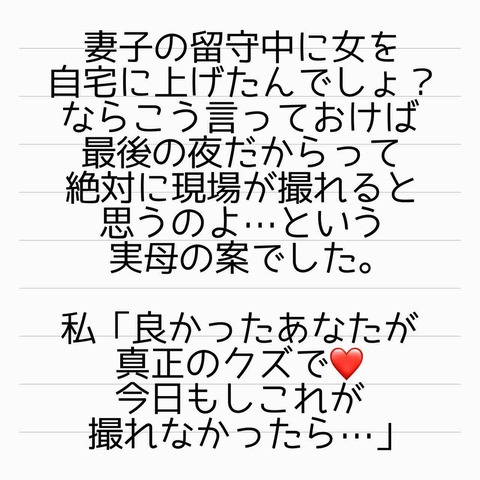 妻子の留守中に女を
自宅に上げたんでしょ？
ならこう言っておけば
最後の夜だからって
絶対に現場が撮れると
思うのよ…という
実母の案でした。
私「良かったあなたが
真正のクズで❤️
今日もしこれが
撮れなかったら…」